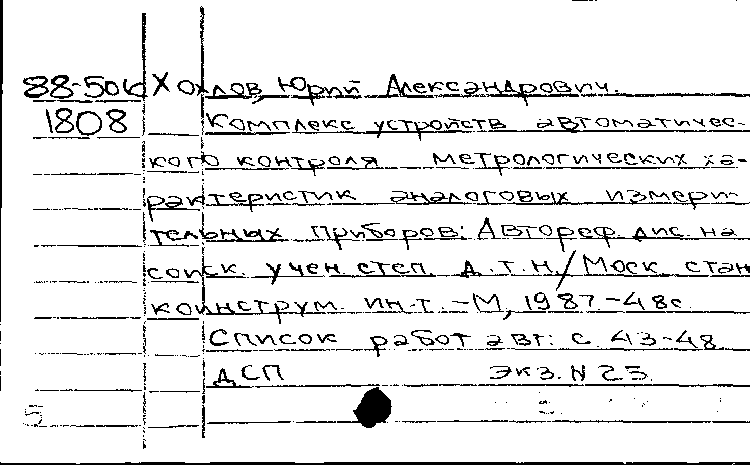 88-506 Хохлов, Юрий Александрович.
1808 Комплекс устройств автоматичес-
кого контроля метрологических ха-
рактеристик аналоговых измери-
тельных приборов: Автореф. дис. на
соиск. учен. степ. д.т.н./ Моск. стан
коинструм. ин-т. -М, 1987-48с
Список работ авт: с. 43-48
ДСП экз. N 25
5